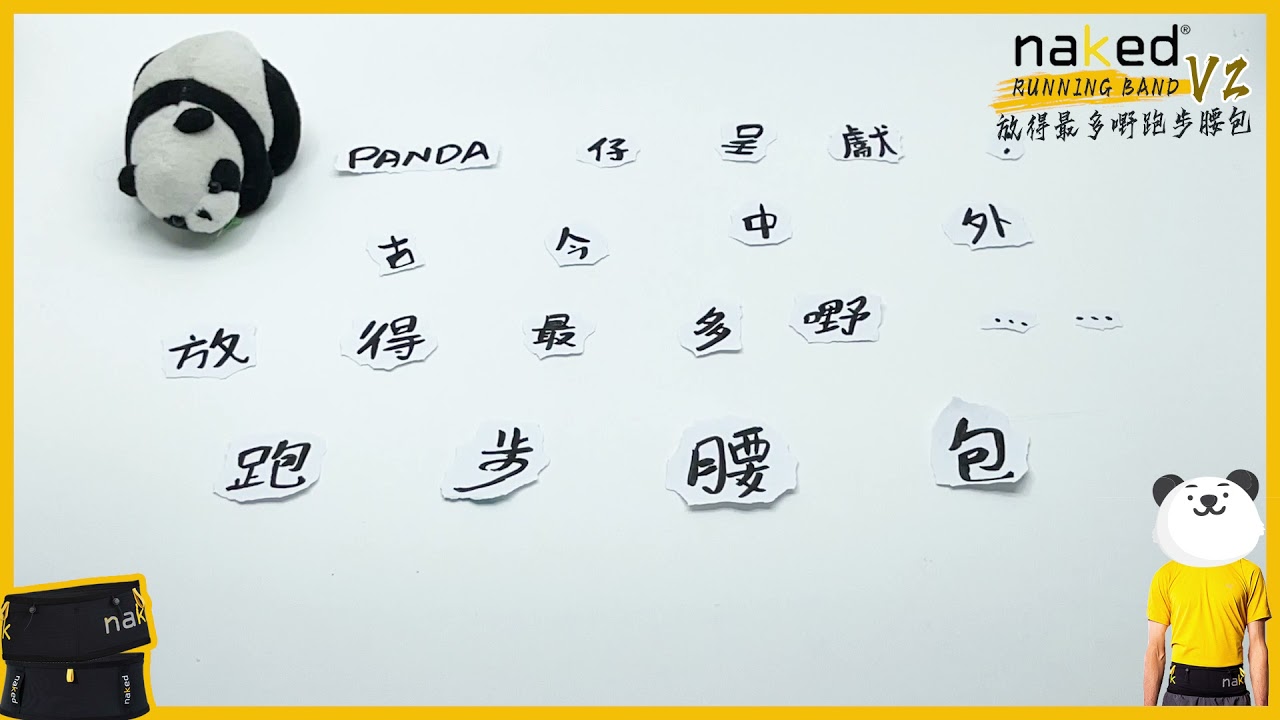 naked®
RUNNING BAND V2
放得最多嘢跑步腰包
PANDA 仔 呈 獻 :
古 今 中 外
放 得 最 多 嘢 … …
跑 步 腰 包
nak
k
naked
naked
nak